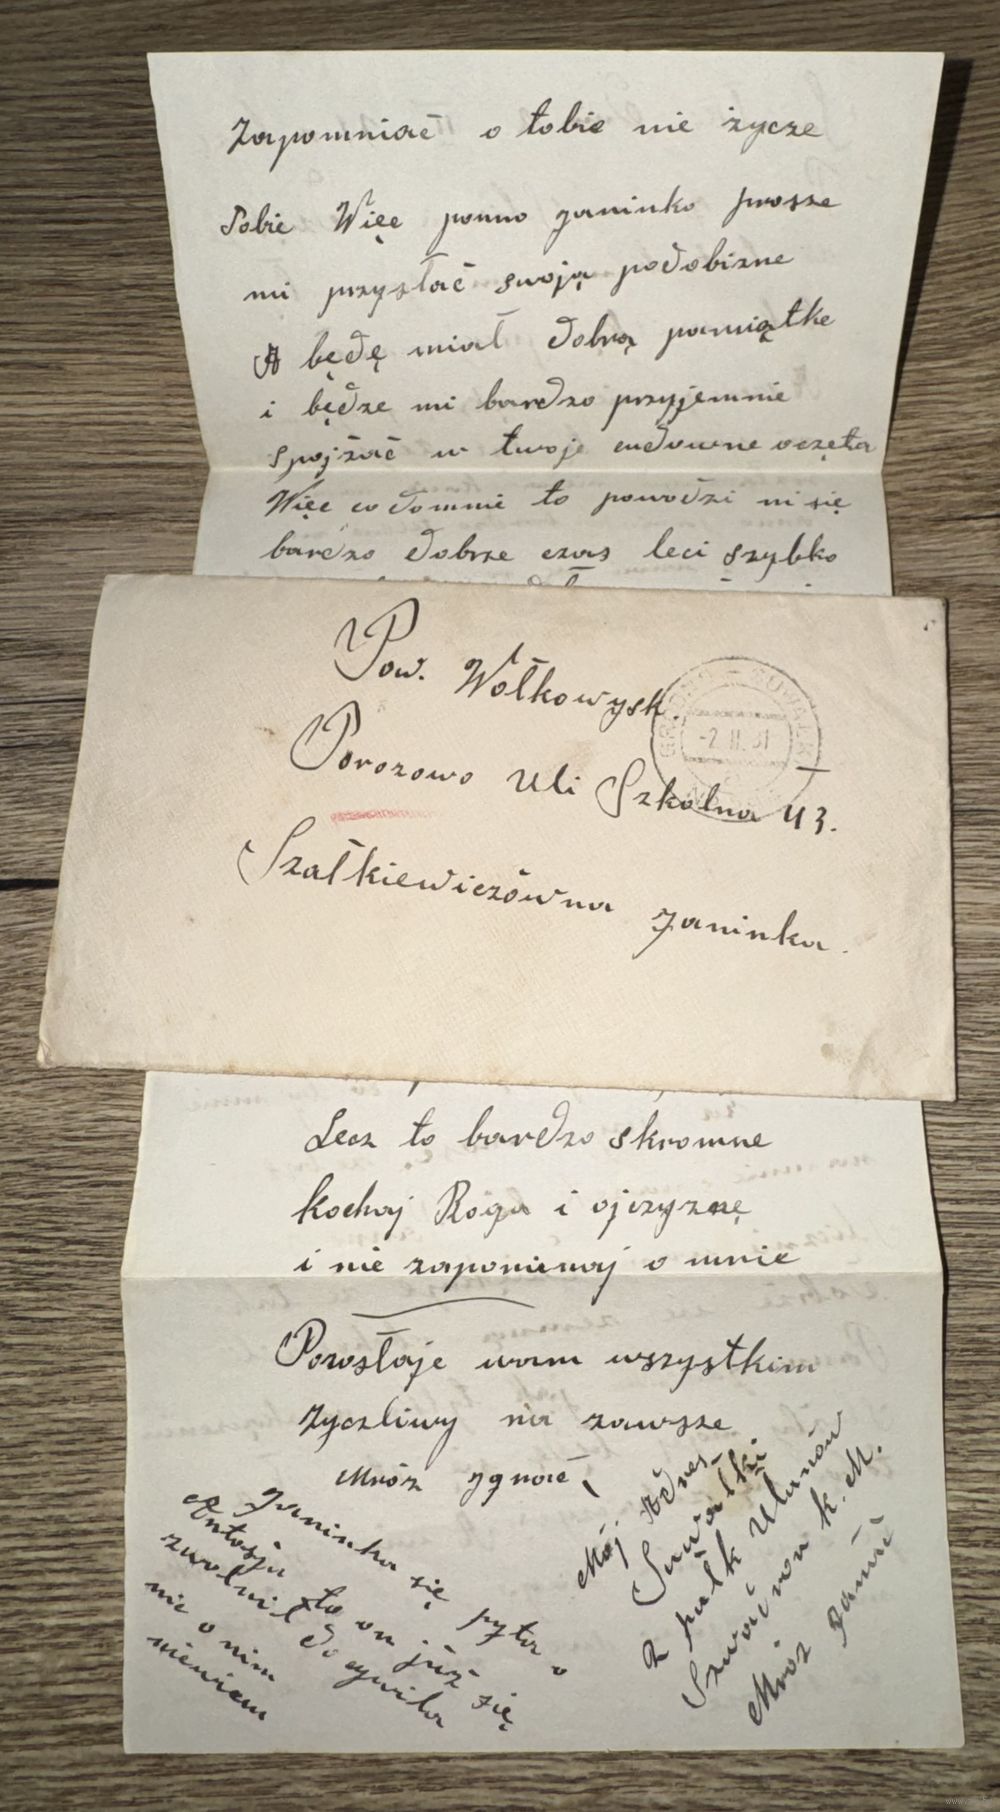 Zapomniać o tobie nie życze
Tobie Więc panno Janinko prosze
mi przysłać swoją podobizne
A będę miał dobrą pamiątke
i będze mi bardzo przyjemnie
spojżać w twoje cudowne oczęta
Więc co domnie to powodzi mi się
bardzo dobrze czas leci szybko
Pow. Wołkowysk.
GRODNO – SUWAŁKI
-2.II.31
Porozowo Uli Szkolna 43.
Szałkiewiczówna Janinka.
Lecz to bardzo skromne
kochaj Boga i ojczyznę
i nie zapominaj o mnie
Pozostaje wam wszystkim
życzliwy na zawsze
Mróz
Janinka się pyta o
Antosju to on już się
zwolnił do cywila
nic o nim
niewiem
Mój Adres
Suwałki
2 pułk Ułanów
Szwadron k. M.
Mróz